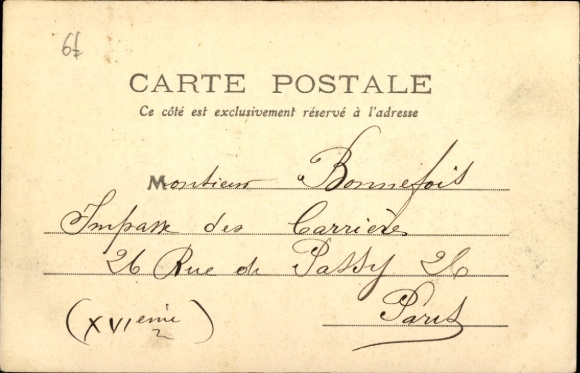 6f
CARTE POSTALE
Ce côté est exclusivement réservé à l'adresse
Monsieur Bonnefois
Impasse des Carrières
26 Rue de Passy 26
Paris
(XVIeme)